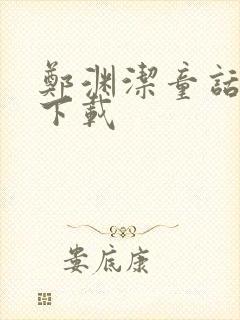 鄭渊潔童話
下載
娄底康